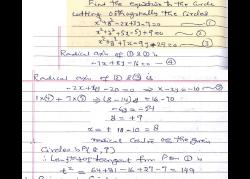 Find the equation to the circle
cutting orthogonally the circles
x²+y²-2x+3y-7=0 — ①
x²+y²+5x-5y+9=0 — ②
x²+y²+7x-9y+29=0 — ③
Radical axis of ① & ② is
-7x+8y-16=0 — ④
Radical axis of ② & ③ is
-2x+4y-20=0 ⇒ x-2y+10=0 — ⑤
1×④ + 7×⑤ ⇒ (8-14)y = 16-70
-6y = -54
y = +9
x = + 18-10 = 8
radical centre of the given
circles P(8,9)
∴ Length of tangent from P to ① is
t² = 64+81-16+27-7 = 149